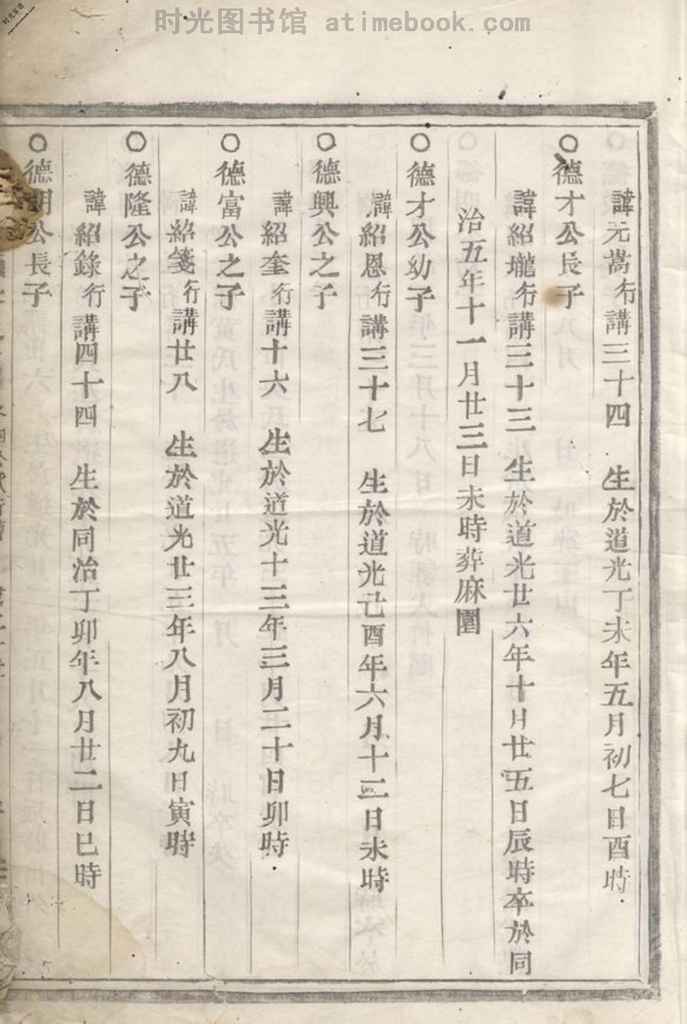 时光图书馆 atimebook.com
諱元嵩行講三十四 生於道光丁未年五月初七日酉時
○德才公長子
諱紹壠行講三十三 生於道光廿六年十月廿五日辰時卒於同
治五年十一月廿三日未時葬麻園
○德才公幼子
諱紹恩行講三十七 生於道光己酉年六月十二日未時
○德興公之子
諱紹奎行講十六 生於道光十三年三月二十日卯時
○德富公之子
諱紹箋行講廿八 生於道光廿三年八月初九日寅時
○德隆公之子
諱紹錄行講四十四 生於同治丁卯年八月廿二日巳時
○德明公長子